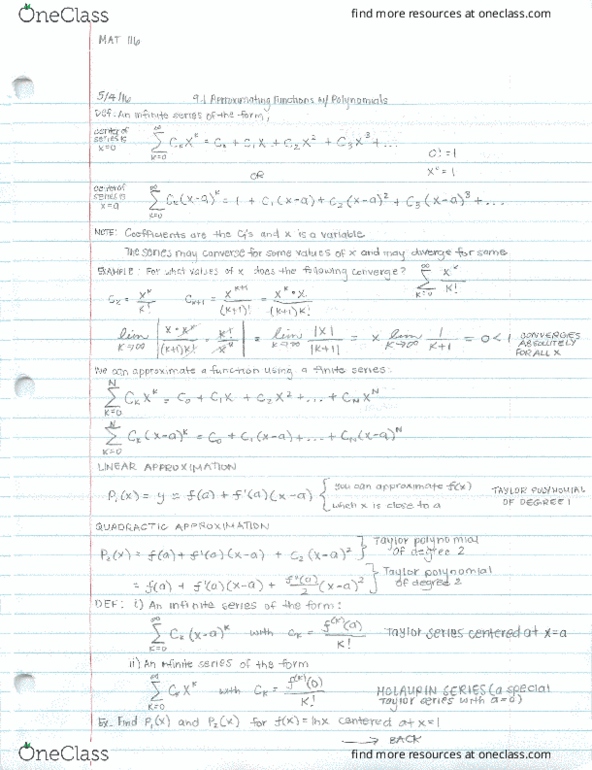 OneClass
find more resources at oneclass.com
MAT 116
5/4/16 9.1 Approximating Functions w/ Polynomials
Def: An infinite series of the form,
center of series is x=0 ∞∑k=0 Cₖxᵏ = Cₖ + C₁x + C₂x² + C₃x³ + ... 0! = 1
OR x⁰ = 1
center of series is x=a ∞∑k=0 Cₖ(x-a)ᵏ = 1 + C₁(x-a) + C₂(x-a)² + C₃(x-a)³ + ...
NOTE: Coefficients are the Cᵢ's and x is a variable
The series may converge for some values of x and may diverge for some
EXAMPLE: For what values of x does the following converge? ∞∑k=0 xᵏ/k!
Cₖ = xᵏ/k! Cₖ₊₁ = xᵏ⁺¹/(k+1)! = xᵏ·x/(k+1)k!
lim k→∞ |x·xᵏ/(k+1)k! · k!/xᵏ| = lim k→∞ |x|/|k+1| = x lim k→∞ 1/k+1 = 0 < 1 CONVERGES ABSOLUTELY FOR ALL X
We can approximate a function using a finite series:
N∑k=0 Cₖxᵏ = C₀ + C₁x + C₂x² + ... + C_N x^N
N∑k=0 Cₖ(x-a)ᵏ = C₀ + C₁(x-a) + ... + C_N(x-a)^N
LINEAR APPROXIMATION
P₁(x) = y = f(a) + f'(a)(x-a) { you can approximate f(x) when x is close to a TAYLOR POLYNOMIAL OF DEGREE 1
QUADRACTIC APPROXIMATION
P₂(x) = f(a) + f'(a)(x-a) + C₂(x-a)² } Taylor polynomial of degree 2
= f(a) + f'(a)(x-a) + f''(a)/2 (x-a)² } Taylor polynomial of degree 2
DEF: i) An infinite series of the form:
∞∑k=0 Cₖ(x-a)ᵏ with Cₖ = f⁽ᵏ⁾(a)/k! Taylor series centered at x=a
ii) An infinite series of the form
∞∑k=0 Cₖxᵏ with Cₖ = f⁽ᵏ⁾(0)/k! SERIES (a special Taylor series with a=0)
Ex. Find P₁(x) and P₂(x) for f(x) = lnx centered at x=1
→ BACK
OneClass
find more resources at oneclass.com